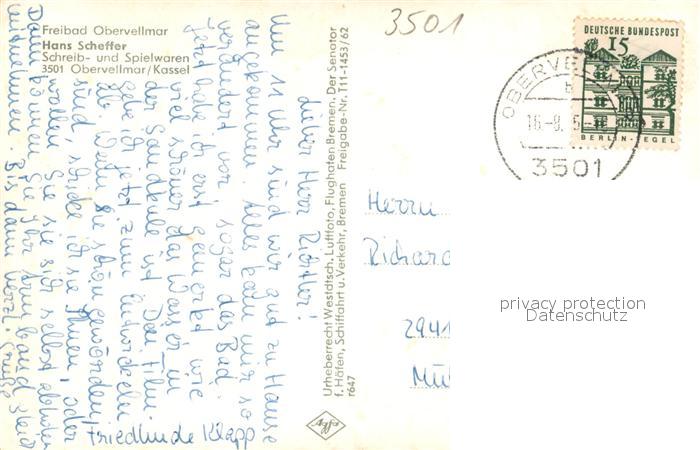 Freibad Obervellmar
Hans Scheffer
Schreib- und Spielwaren
3501 Obervellmar/Kassel
3501
DEUTSCHE BUNDESPOST
15
BERLIN-TEGEL
OBERVE
16.-8.
3501
Lieber Herr Richter!
Um 11 Uhr sind wir gut zu Hause
angekommen. Alles kam mir so
verändert vor sogar das Bad.
Jetzt habe ich erst gemerkt wie
viel schöner das Wasser in
der Sandkule ist. Den Film
gebe ich jetzt zum Entwickeln
ab. Wenn die schön geworden
sind, schicke ich sie Ihnen, oder
wollen Sie sie sich selbst abholen
Dann können Sie Ihr
mitnehmen. Bis dann herzl. Grüße
Friedlinde Klapp
Urheberrecht Westdtsch. Luftfoto, Flughafen Bremen. Der Senator
f. Häfen, Schiffahrt u. Verkehr, Bremen Freigabe-Nr. T11-1453/62
r647
Agfa
Herrn
Richard
2941
privacy protection
Datenschutz